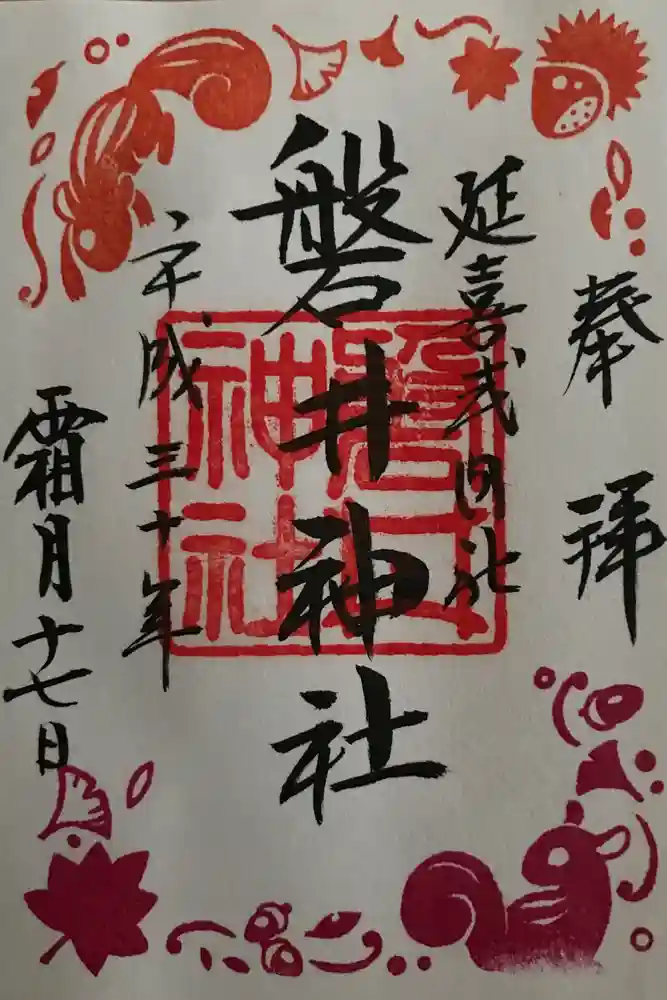 奉拝
延喜式内社
磐井神社
平成三十年
霜月十七日
磐井神社